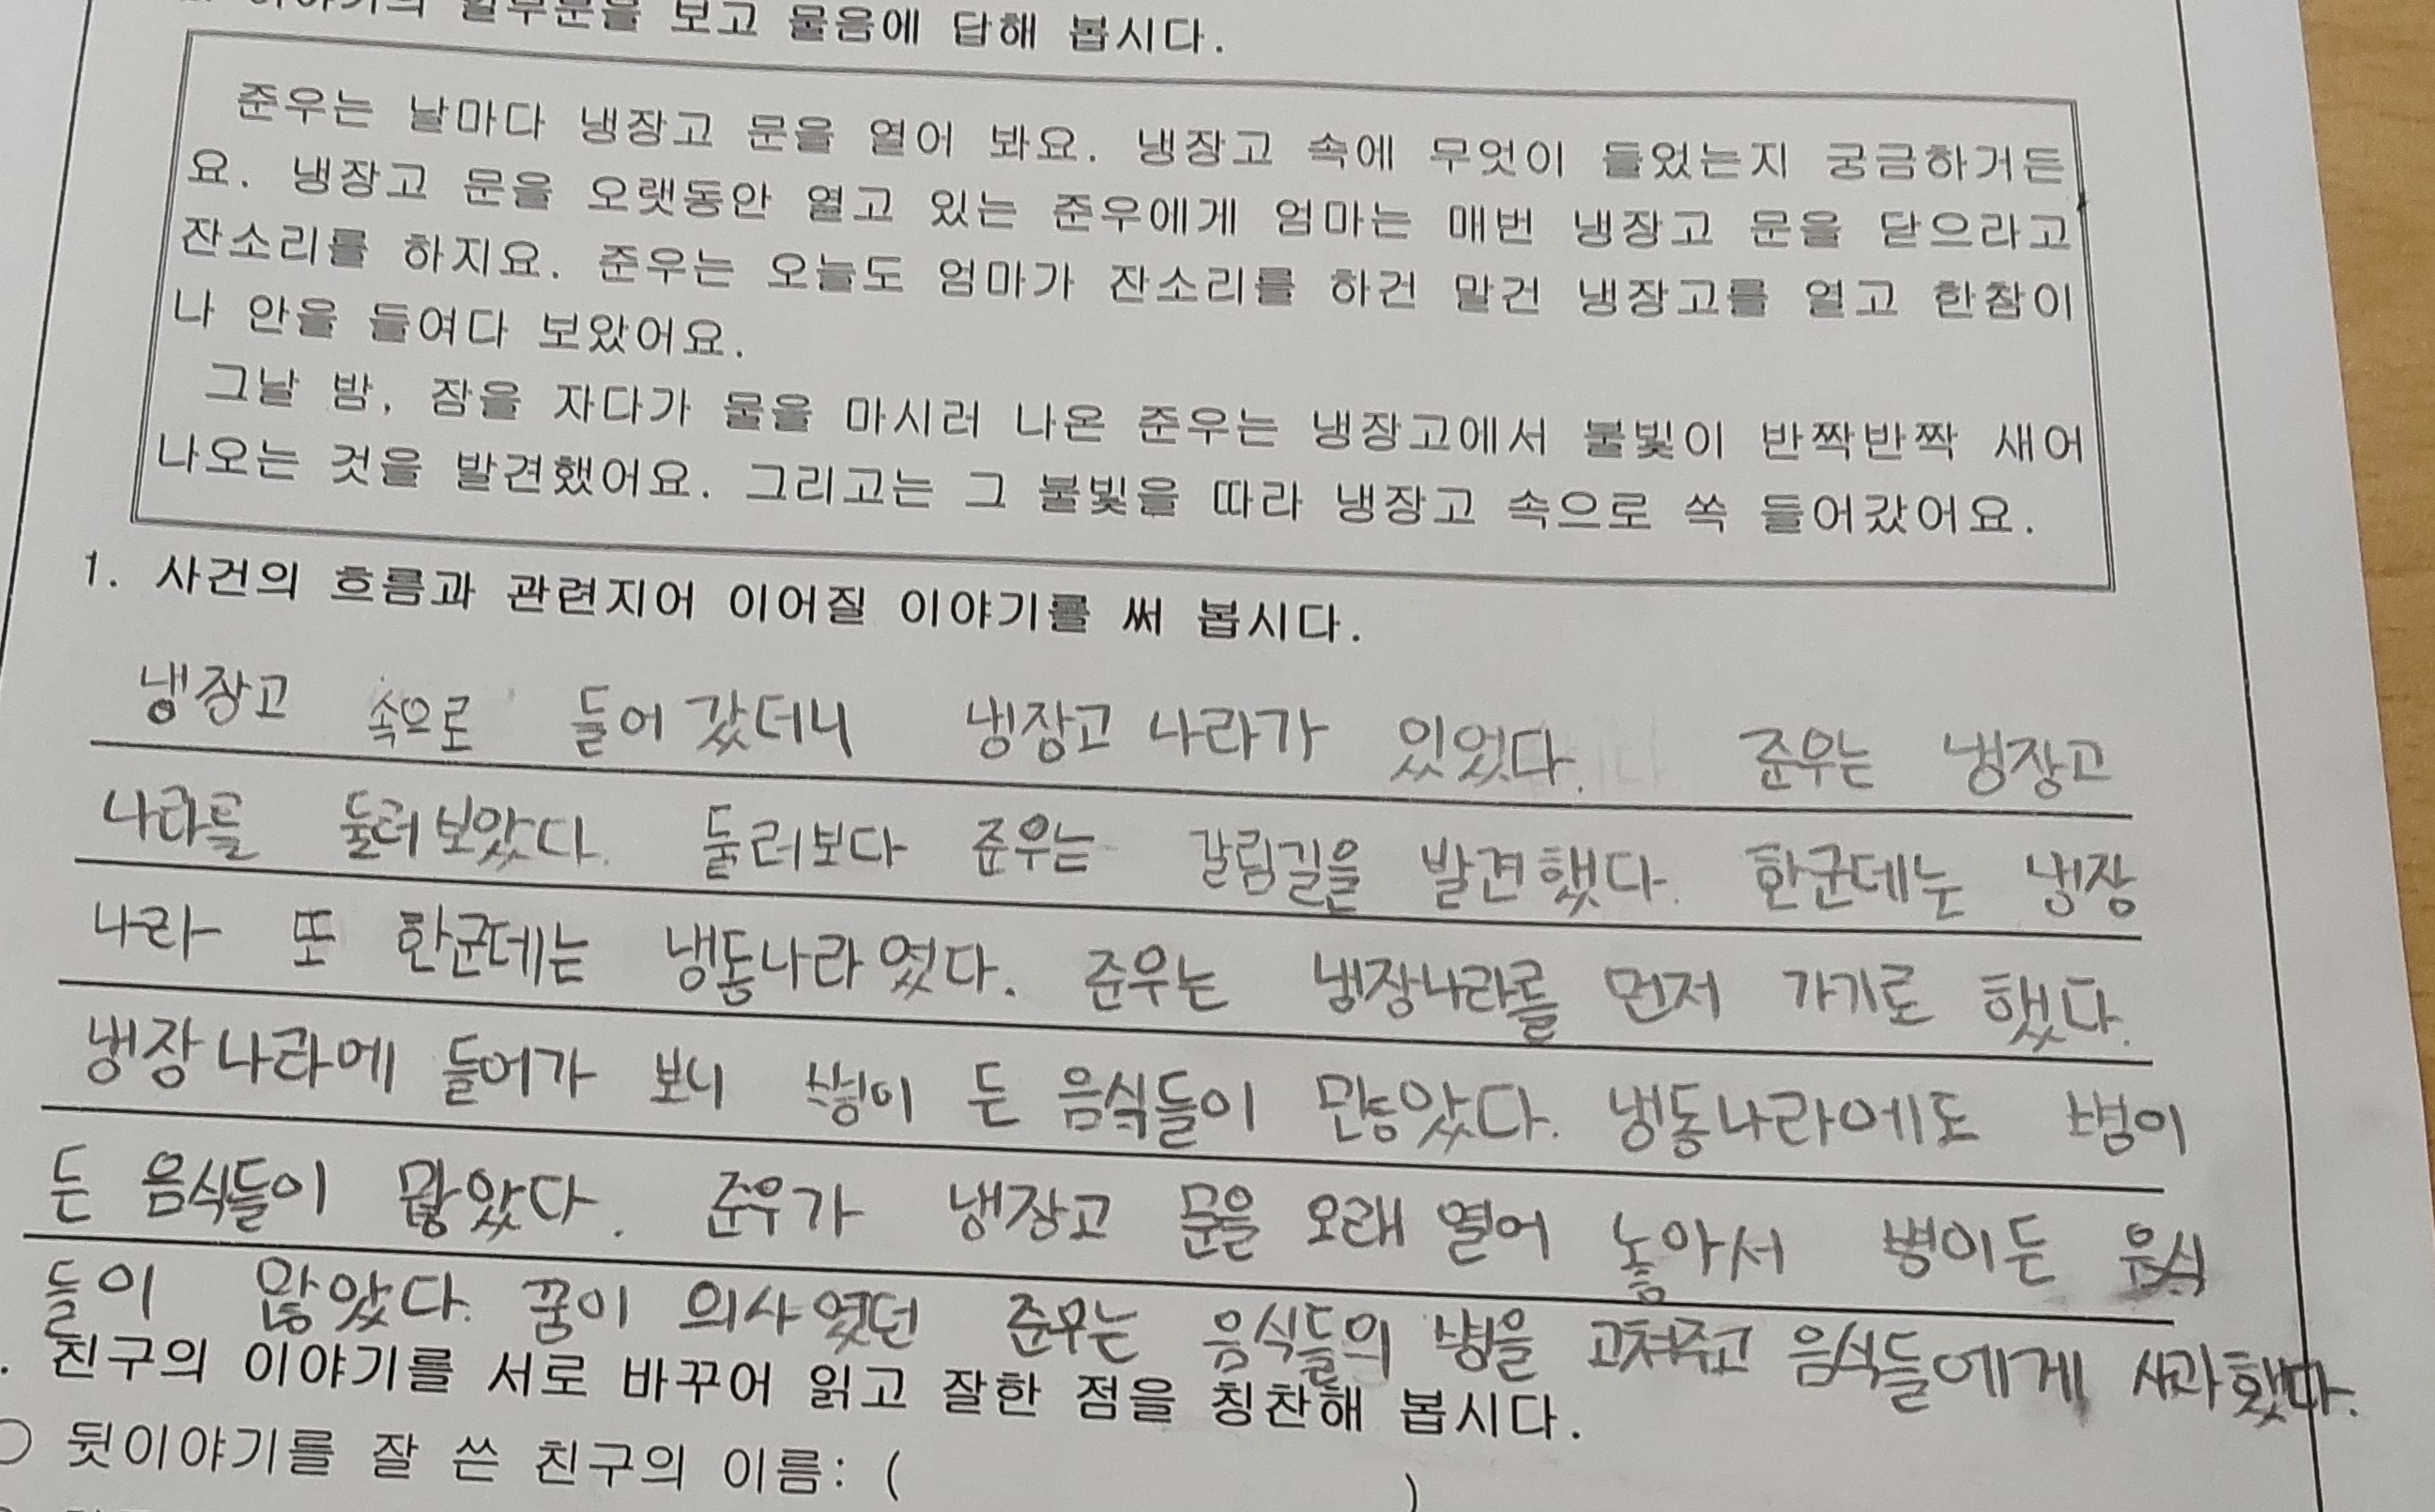 이야기의 일부분을 보고 물음에 답해 봅시다.
준우는 날마다 냉장고 문을 열어 봐요. 냉장고 속에 무엇이 들었는지 궁금하거든
요. 냉장고 문을 오랫동안 열고 있는 준우에게 엄마는 매번 냉장고 문을 닫으라고
잔소리를 하지요. 준우는 오늘도 엄마가 잔소리를 하건 말건 냉장고를 열고 한참이
나 안을 들여다 보았어요.
그날 밤, 잠을 자다가 물을 마시러 나온 준우는 냉장고에서 불빛이 반짝반짝 새어
나오는 것을 발견했어요. 그리고는 그 불빛을 따라 냉장고 속으로 쏙 들어갔어요.
1. 사건의 흐름과 관련지어 이어질 이야기를 써 봅시다.
냉장고 속으로 들어 갔더니 냉장고 나라가 있었다. 준우는 냉장고
나라를 둘러보았다. 둘러보다 준우는 갈림길을 발견했다. 한군데는 냉장
나라 또 한군데는 냉동나라였다. 준우는 냉장나라를 먼저 가기로 했다.
냉장나라에 들어가 보니 병이 든 음식들이 많았다. 냉동나라에도 병이
든 음식들이 많았다. 준우가 냉장고 문을 오래 열어 놓아서 병이든 음식
들이 많았다. 꿈이 의사였던 준우는 음식들의 병을 고쳐주고 음식들에게 사과했다.
. 친구의 이야기를 서로 바꾸어 읽고 잘한 점을 칭찬해 봅시다.
○ 뒷이야기를 잘 쓴 친구의 이름: ( )